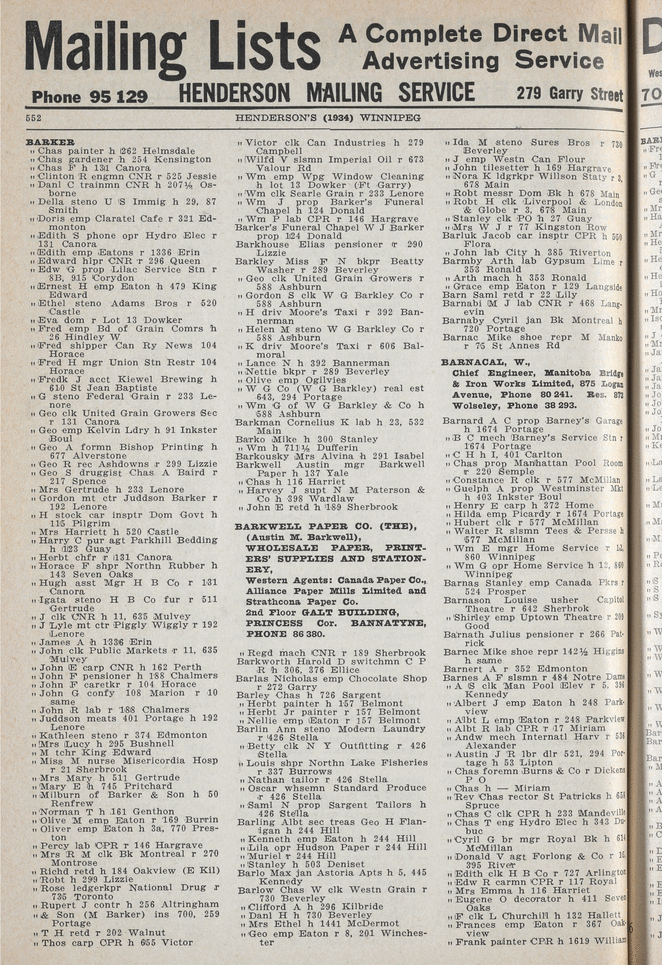 Mailing Lists A Complete Direct Mail
Advertising Service
Phone 95 129 HENDERSON MAILING SERVICE 279 Garry Street
552 HENDERSON'S (1934) WINNIPEG
BARKER
" Chas painter h 262 Helmsdale
" Chas gardener h 254 Kensington
" Chas F h 131 Canora
" Clinton R engmn CNR r 525 Jessie
" Danl C trainmn CNR h 207½ Os-
borne
" Della steno U S Immig h 29, 87
Smith
" Doris emp Claratel Cafe r 321 Ed-
monton
" Edith S phone opr Hydro Elec r
131 Canora
" Edith emp Eatons r 1336 Erin
" Edward hlpr CNR r 296 Queen
" Edw G prop Lilac Service Stn r
8B, 915 Corydon
" Ernest H emp Eaton h 479 King
Edward
" Ethel steno Adams Bros r 520
Castle
" Eva dom r Lot 13 Dowker
" Fred emp Bd of Grain Comrs h
26 Hindley W
" Fred shipper Can Ry News 104
Horace
" Fred H mgr Union Stn Restr 104
Horace
" Fredk J acct Kiewel Brewing h
610 St Jean Baptiste
" G steno Federal Grain r 233 Le-
nore
" Geo clk United Grain Growers Sec
r 131 Canora
" Geo emp Kelvin Ldry h 91 Inkster
Boul
" Geo A formn Bishop Printing h
677 Alverstone
" Geo R rec Ashdowns r 299 Lizzie
" Geo S druggist Chas A Baird r
217 Spence
" Mrs Gertrude h 233 Lenore
" Gordon mt ctr Juddson Barker r
192 Lenore
" H stock car insptr Dom Govt h
115 Pilgrim
" Mrs Harriett h 520 Castle
" Harry C pur agt Parkhill Bedding
h 623 Guay
" Herbt chfr r 131 Canora
" Horace F shpr Northn Rubber h
143 Seven Oaks
" Hugh asst Mgr H B Co r 131
Canora
" Igata steno H B Co fur r 511
Gertrude
" J clk CNR h 11, 635 Mulvey
" J Lyle mt ctr Piggly Wiggly r 192
Lenore
" James A h 1336 Erin
" John clk Public Markets r 11, 635
Mulvey
" John E carp CNR h 162 Perth
" John F pensioner h 188 Chalmers
" John F caretkr r 104 Horace
" John G confy 108 Marion r 10
same
" John R lab r 188 Chalmers
" Juddson meats 401 Portage h 192
Lenore
" Kathleen steno r 374 Edmonton
" Mrs Lucy h 295 Bushnell
" M tchr King Edward
" Miss M nurse Misericordia Hosp
r 21 Sherbrook
" Mrs Mary h 511 Gertrude
" Mary E h 745 Pritchard
" Milburn of Barker & Son h 50
Renfrew
" Norman T h 161 Genthon
" Olive M emp Eaton r 169 Burrin
" Oliver emp Eaton h 3a, 770 Pres-
ton
" Percy lab CPR r 146 Hargrave
" Mrs R M clk Bk Montreal r 270
Montrose
" Richd retd h 184 Oakview (E Kil)
" Robt h 299 Lizzie
" Rose ledgerkpr National Drug r
735 Toronto
" Rupert J contr h 256 Altringham
" & Son (M Barker) ins 700, 259
Portage
" T H retd r 202 Walnut
" Thos carp CPR h 655 Victor
" Victor clk Can Industries h 279
Campbell
" Wilfd V slsmn Imperial Oil r 673
Valour Rd
" Wm emp Wpg Window Cleaning
h lot 13 Dowker (Ft Garry)
" Wm clk Searle Grain r 233 Lenore
" Wm J prop Barker's Funeral
Chapel h 124 Donald
" Wm P lab CPR r 146 Hargrave
Barker's Funeral Chapel W J Barker
prop 124 Donald
Barkhouse Elias pensioner r 290
Lizzie
Barkley Miss F N bkpr Beatty
Washer r 289 Beverley
" Geo clk United Grain Growers r
588 Ashburn
" Gordon S clk W G Barkley Co r
588 Ashburn
" H driv Moore's Taxi r 392 Ban-
nerman
" Helen M steno W G Barkley Co r
588 Ashburn
" K driv Moore's Taxi r 606 Bal-
moral
" Lance N h 392 Bannerman
" Nettie bkpr r 289 Beverley
" Olive emp Ogilvies
" W G Co (W G Barkley) real est
643, 294 Portage
" Wm G of W G Barkley & Co h
588 Ashburn
Barkman Cornelius K lab h 23, 532
Main
Barko Mike h 300 Stanley
" Wm h 711½ Dufferin
Barkousky Mrs Alvina h 291 Isabel
Barkwell Austin mgr Barkwell
Paper h 137 Yale
" Chas h 116 Harriet
" Harvey J supt N M Paterson &
Co h 398 Wardlaw
" John E retd h 189 Sherbrook
BARKWELL PAPER CO. (THE),
(Austin M. Barkwell),
WHOLESALE PAPER, PRINT-
ERS' SUPPLIES AND STATION-
ERY,
Western Agents: Canada Paper Co.,
Alliance Paper Mills Limited and
Strathcona Paper Co.
2nd Floor GALT BUILDING,
PRINCESS Cor. BANNATYNE,
PHONE 86 380.
" Regd mach CNR r 189 Sherbrook
Barkworth Harold D switchmn C P
R h 306, 376 Ellice
Barlas Nicholas emp Chocolate Shop
r 272 Garry
Barley Chas h 726 Sargent
" Herbt painter h 157 Belmont
" Herbt Jr painter r 157 Belmont
" Nellie emp Eaton r 157 Belmont
Barlin Ann steno Modern Laundry
r 426 Stella
" Betty clk N Y Outfitting r 426
Stella
" Louis shpr Northn Lake Fisheries
r 337 Burrows
" Nathan tailor r 426 Stella
" Oscar whsemn Standard Produce
r 426 Stella
" Saml N prop Sargent Tailors h
426 Stella
Barling Albt sec treas Geo H Flan-
igan h 244 Hill
" Kenneth emp Eaton h 244 Hill
" Lila opr Hudson Paper r 244 Hill
" Muriel r 244 Hill
" Stanley h 503 Deniset
Barlo Max jan Astoria Apts h 5, 445
Kennedy
Barlow Chas W clk Westn Grain r
730 Beverley
" Clifford A h 296 Kilbride
" Danl H h 730 Beverley
" Mrs Ethel h 1441 McDermot
" Geo emp Eaton r 8, 201 Winches-
ter
" Ida M steno Sures Bros r 730
Beverley
" J emp Westn Can Flour
" John tilesetter h 169 Hargrave
" Nora K ldgrkpr Willson Staty r 3,
678 Main
" Robt messr Dom Bk h 678 Main
" Robt H clk Liverpool & London
& Globe r 3, 678 Main
" Stanley clk PO h 27 Guay
" Mrs W J r 77 Kingston Row
Barluk Jacob car insptr CPR h 550
Flora
" John lab City h 385 Riverton
Barmby Arth lab Gypsum Lime r
353 Ronald
" Arth mach h 353 Ronald
" Grace emp Eaton r 129 Langside
Barn Saml retd r 22 Lily
Barnabi M J lab CNR r 468 Lang-
evin
Barnaby Cyril jan Bk Montreal h
720 Portage
Barnac Mike shoe repr M Manko
r 75 St Annes Rd
BARNACAL, W.,
Chief Engineer, Manitoba Bridge
& Iron Works Limited, 875 Logan
Avenue, Phone 80 241. Res. 873
Wolseley, Phone 38 293.
Barnard A C prop Barney's Garage
h 1674 Portage
" B C mech Barney's Service Stn r
1674 Portage
" C H h I, 401 Carlton
" Chas prop Manhattan Pool Room
r 220 Semple
" Constance R clk r 577 McMillan
" Guelph A prop Westminster Mkt
h 403 Inkster Boul
" Henry E carp h 372 Home
" Hilda emp Picardy r 1674 Portage
" Hubert clk r 577 McMillan
" Walter R slsmn Tees & Persse h
577 McMillan
" Wm E mgr Home Service r 12,
860 Winnipeg
" Wm G opr Home Service h 12, 860
Winnipeg
Barnas Stanley emp Canada Pkrs r
524 Prosper
Barnason Louise usher Capitol
Theatre r 642 Sherbrok
" Shirley emp Uptown Theatre r 209
Good
Barnath Julius pensioner r 266 Pat-
rick
Barnec Mike shoe repr 142½ Higgins
h same
Barnert A r 352 Edmonton
Barnes A F slsmn r 484 Notre Dame
" A S clk Man Pool Elev r 5, 396
Kennedy
" Albert J emp Eaton r 248 Park-
view
" Albt L emp Eaton r 248 Parkview
" Albt R lab CPR r 17 Miriam
" Andw mech Internatl Harv r 536
Alexander
" Austin J R lbr dlr 521, 294 Por-
tage h 53 Lipton
" Chas foremn Burns & Co r Dickens
P O
" Chas h — Miriam
" Rev Chas rector St Patricks h 654
Spruce
" Chas C clk CPR h 233 Mandeville
" Chas T eng Hydro Elec h 343 Du-
buc
" Cyril G br mgr Royal Bk h 614
McMillan
" Donald V agt Forlong & Co r 16,
395 River
" Edith clk H B Co r 727 Arlington
" Edw R carmn CPR r 117 Royal
" Mrs Emma h 116 Harriet
" Eugene O decorator h 411 Seven
Oaks
" F clk L Churchill h 132 Hallett
" Frances emp Eaton r 367 Oak-
view
" Frank painter CPR h 1619 William